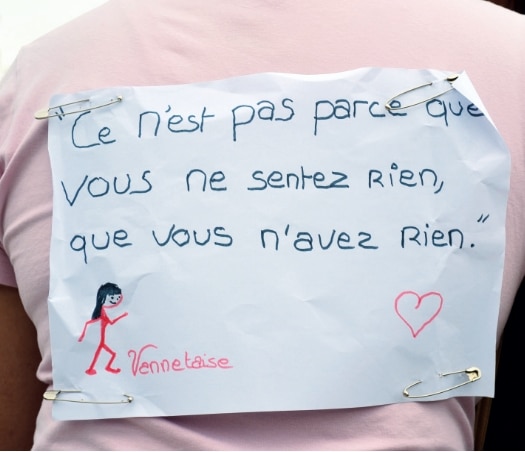 "Ce n'est pas parce que
vous ne sentez rien,
que vous n'avez rien."
Vennetaise